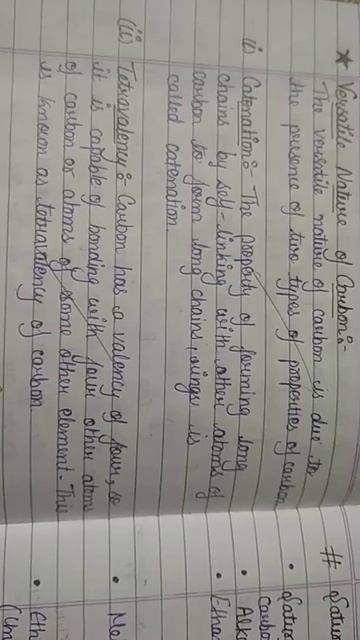 ★ Versatile Nature of Carbon:-
The versatile nature of carbon is due to
the presence of two types of properties of carbon
i) Catenation:- The property of forming long
chains by self-linking with other atoms of
carbon to form long chains, rings is
called catenation.
(ii) Tetravalency:- Carbon has a valency of four, so
it is capable of bonding with four other atoms
of carbon or atoms of some other element. This
is known as tetravalency of carbon
#